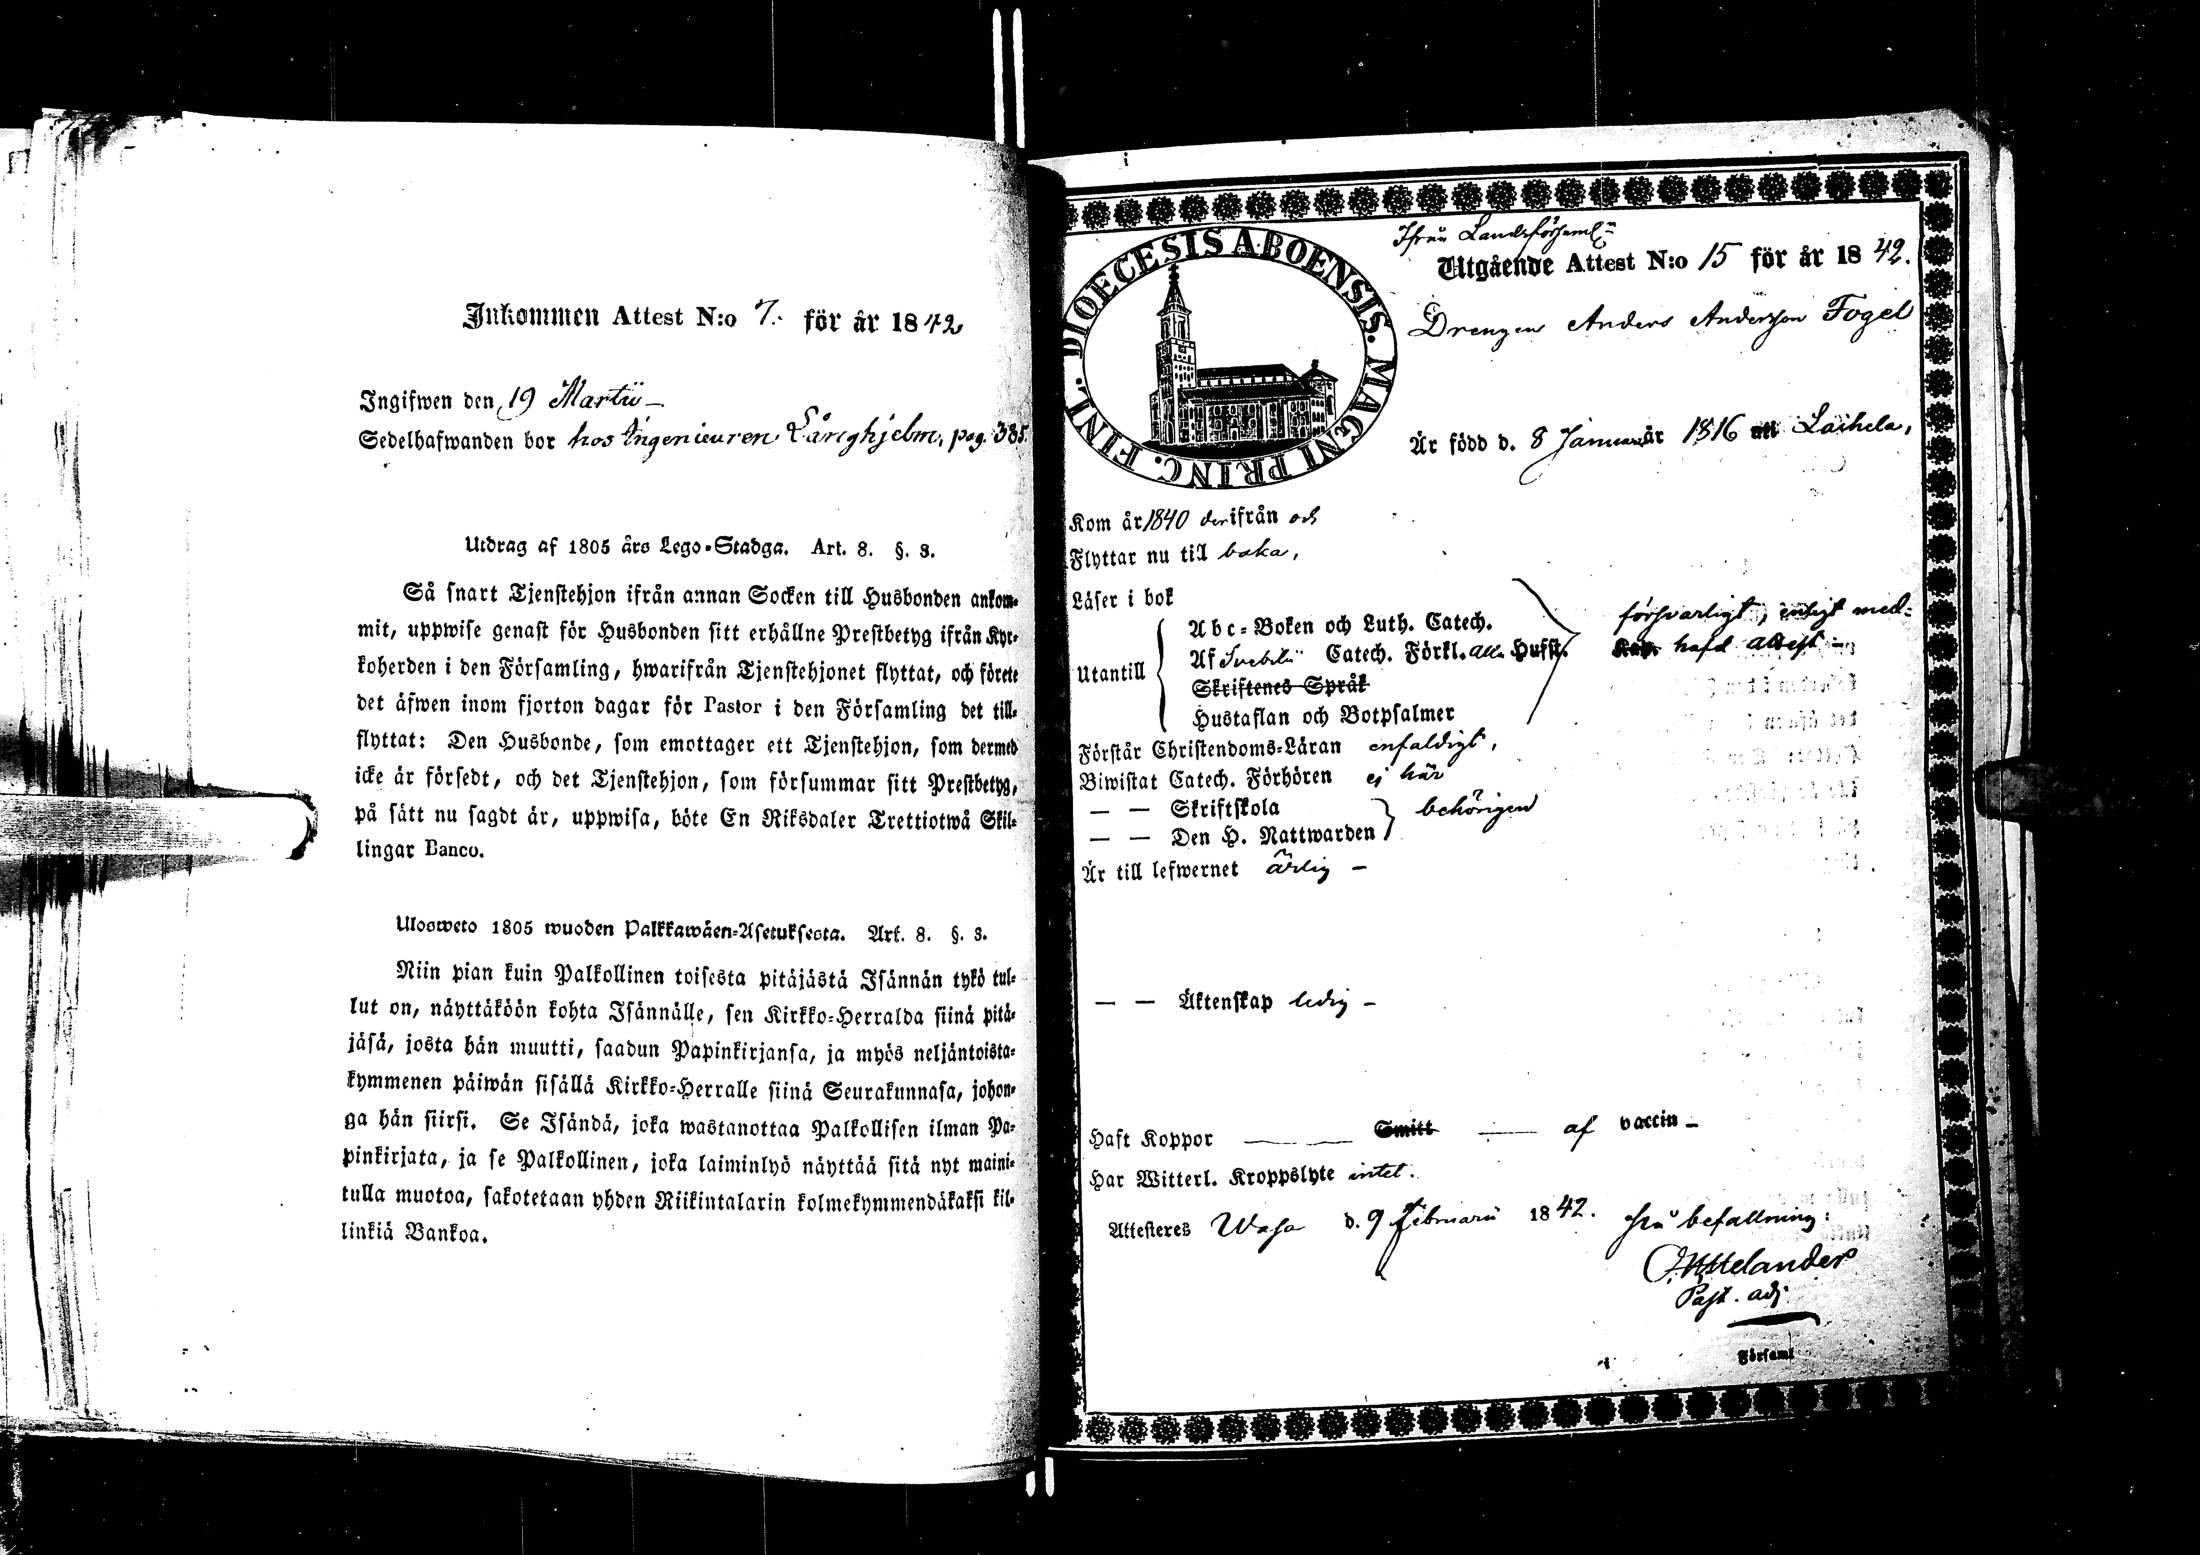 Inkommen Attest N:o 7. för år 1842
Ingifwen den 19 Martii
Sedelhafwanden bor hos Ingenieuren Långhjelm, pag. 385.
Utdrag af 1805 års Lego-Stadga. Art. 8. §. 3.
Så snart Tjenstehjon ifrån annan Socken till Husbonden ankom-
mit, uppwise genast för Husbonden sitt erhållne Prestbetyg ifrån Kyr-
koherden i den Församling, hwarifrån Tjenstehjonet flyttat, och förete
det äfwen inom fjorton dagar för Pastor i den Församling det till-
flyttat: Den Husbonde, som emottager ett Tjenstehjon, som dermed
icke är försedt, och det Tjenstehjon, som försummar sitt Prestbetyg,
på sätt nu sagdt är, uppwisa, böte En Riksdaler Trettiotwå Skil-
lingar Banco.
Ulosweto 1805 wuoden Palkkawäen-Asetuksesta. Art. 8. §. 3.
Niin pian kuin Palkollinen toisesta pitäjästä Isännän tykö tul-
lut on, näyttäköön kohta Isännälle, sen Kirkko-Herralda siinä pitä-
jäsä, josta hän muutti, saadun Papinkirjansa, ja myös neljäntoista-
kymmenen päiwän sisällä Kirkko-Herralle siinä Seurakunnasa, johon-
ga hän siirsi. Se Isändä, joka wastanottaa Palkollisen ilman Pa-
pinkirjata, ja se Palkollinen, joka laiminlyö näyttää sitä nyt maini-
tulla muotoa, sakotetaan yhden Riikintalarin kolmekymmendäkaksi kil-
linkiä Bankoa.
DIOECESIS ABOENSIS. MAGNI PRINC. FINL.
Ifrån Landsförsaml:n
Utgående Attest N:o 15 för år 1842.
Drengen Anders Andersson Fogel
Är född d. 8 Januari år 1816 uti Laihela,
Kom år 1840 derifrån och
Flyttar nu till baka,
Läser i bok
Abc-Boken och Luth. Catech.
Utantill
Af Svebilii Catech. Förkl. alla Hufst.
Skriftenes Språk
Hustaflan och Botpsalmer
försvarligt, enligt med-
hafd attest
Förstår Christendoms-Läran enfaldigt,
Biwistat Catech. Förhören ej här
— — Skriftskola
— — Den H. Nattwarden
behörigen
Är till lefwernet ärlig —
— — Äktenskap ledig —
Haft Koppor — — Smitt — af vaccin —
Har Witterl. Kroppslyte intet.
Attesteres Wasa d. 9 Februarii 1842. På befallning:
Past. adj.
Församl